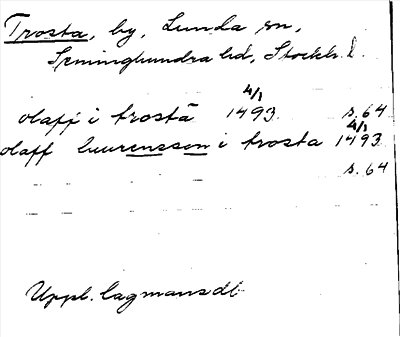 Trosta, by, Lunda sn,
Seminghundra hd, Stockh. l.
olaff i trostā 4/1 1493 s. 64
olaff laurensson i trosta 4/1 1493
s. 64
Uppl. lagmansdb